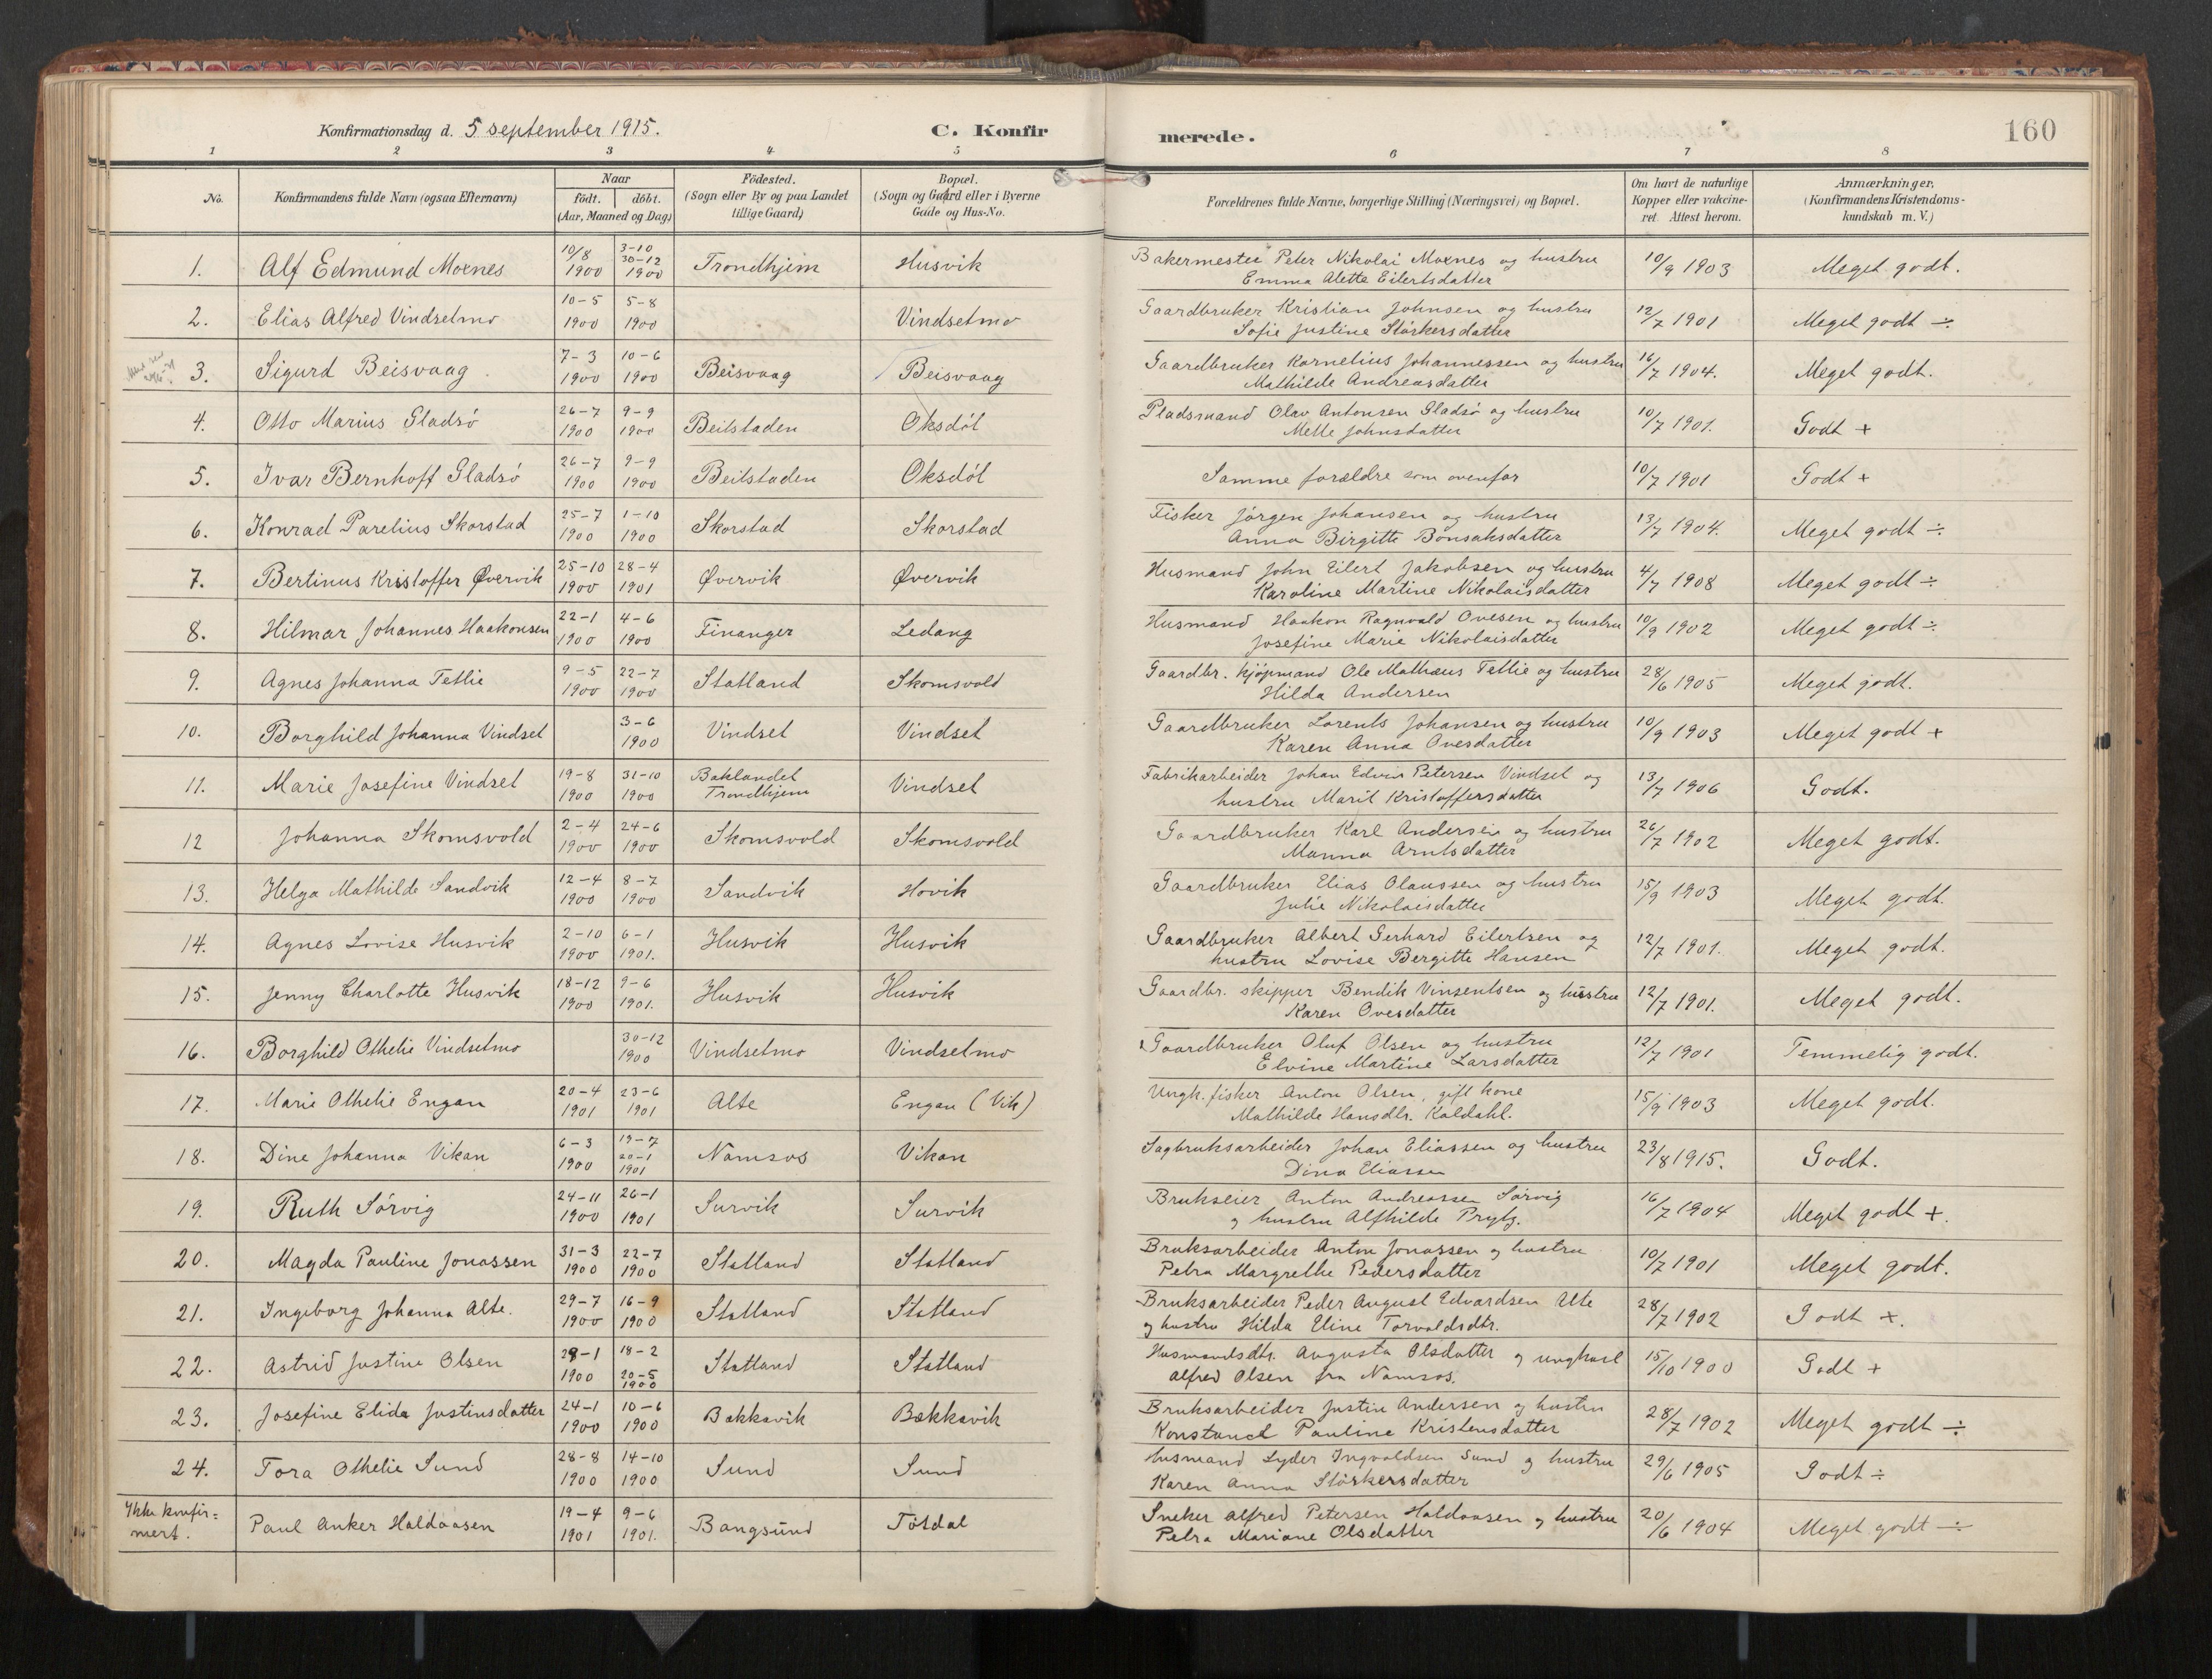 Konfirmationsdag d. 5 september 1915.
C. Konfirmerede.
160
1 2 3 4 5 6 7 8
No.
Konfirmandens fulde Navn (ogsaa Efternavn)
Naar
födt. döbt.
(Aar, Maaned og Dag)
Födested.
(Sogn eller By og paa Landet
tillige Gaard)
Bopæl.
(Sogn og Gaard eller i Byerne
Gade og Hus-No.
Forældrenes fulde Navne, borgerlige Stilling (Næringsvei) og Bopæl.
Om havt de naturlige
Kopper eller vakcine-
ret. Attest herom.
Anmærkninger,
(Konfirmandens Kristendoms-
kundskab m. V.)
1. Alf Edmund Moxnes 10/8 1900 3-10 30-12 1900 Trondhjem Husvik Bakermester Peter Nikolai Moxnes og hustru
Emma Alette Eilertsdatter 10/9 1903 Meget godt.
2. Elias Alfred Vindsetmo 10-5 1900 5-8 1900 Vindsetmo Gaardbruker Kristian Johnsen og hustru
Sofie Justine Störkersdatter 12/7 1901 Meget godt ÷
3. Sigurd Beisvaag 7-3 1900 10-6 1900 Beisvaag Beisvaag Gaardbruker Kornelius Johannessen og hustru
Mathilde Andreasdatter 16/7 1904. Meget godt.
4. Otto Marius Gladsö 26-7 1900 9-9 1900 Beitstaden Oksdöl Pladsmand Olav Antonsen Gladsö og hustru
Mette Johnsdatter 10/7 1901. Godt +
5. Ivar Bernhoff Gladsö 26-7 1900 9-9 1900 Beitstaden Oksdöl Samme forældre som ovenfor 10/7 1901 Godt +
6. Konrad Parelius Skorstad 25-7 1900 1-10 1900 Skorstad Skorstad Fisker Jörgen Johansen og hustru
Anna Birgitte Bonsaksdatter 13/7 1904. Meget godt ÷
7. Bertinus Kristoffer Øvervik 25-10 1900 28-4 1901 Øvervik Øvervik Husmand John Eilert Jakobsen og hustru
Karoline Martine Nikolaisdatter 4/7 1908 Meget godt ÷
8. Hilmar Johannes Haakonsen 22-1 1900 4-6 1900 Finanger Ledang Husmand Haakon Ragnvald Ovesen og hustru
Josefine Marie Nikolaisdatter 10/9 1902 Meget godt ÷
9. Agnes Johanna Tetlie 9-5 1900 22-7 1900 Statland Skomsvold Gaardbr. kjøpmand Ole Mathæus Tetlie og hustru
Hilda Andersen 28/6 1905 Meget godt.
10. Borghild Johanna Vindset 3-6 1900 Vindset Vindset Gaardbruker Lorents Johansen og hustru
Karen Anna Ovesdatter 10/9 1903 Meget godt +
11. Marie Josefine Vindset 19-8 1900 31-10 1900 Baklandet
Trondhjem Vindset Fabrikarbeider Johan Edvin Petersen Vindset og
hustru Marit Kristoffersdatter 13/7 1906 Godt.
12 Johanna Skomsvold 2-4 1900 24-6 1900 Skomsvold Skomsvold Gaardbruker Karl Andersen og hustru
Manna Arntsdatter 26/7 1902 Meget godt.
13. Helga Mathilde Sandvik 12-4 1900 8-7 1900 Sandvik Hovik Gaardbruker Elias Olaussen og hustru
Julie Nikolaisdatter 15/9 1903 Meget godt.
14. Agnes Lovise Husvik 2-10 1900 6-1 1901. Husvik Husvik Gaardbruker Albert Gerhard Eilertsen og
hustru Lovise Bergitte Hansen 12/7 1901. Meget godt.
15. Jenny Charlotte Husvik 18-12 1900 9-6 1901. Husvik Husvik Gaardbr. skipper Bendik Vinsentsen og hustru
Karen Ovesdatter 12/7 1901. Meget godt.
16. Borghild Othelie Vindsetmo 30-12 1900 Vindsetmo Vindsetmo Gaardbruker Oluf Olsen og hustru
Elvine Martine Larsdatter 12/7 1901 Temmelig godt.
17. Marie Othelie Engan 20-4 1901 23-6 1901 Alte Engan (Vik) Ungk. fisker Anton Olsen, gift kone
Mathilde Hansdtr. Kaldahl. 15/9 1903 Meget godt.
18. Dine Johanna Vikan 6-3 1900 19-7 20-1 1901 Namsos Vikan Sagbruksarbeider Johan Eliassen og hustru
Dina Eliassen 23/8 1915. Godt.
19. Ruth Sörvig 24-11 1900 26-1 1901 Survik Survik Brukseier Anton Andreassen Sörvig
og hustru Alfhilde Prytz. 16/7 1904 Meget godt +.
20. Magda Pauline Jonassen 31-3 1900 22-7 1900 Statland Statland Bruksarbeider Anton Jonassen og hustru
Petra Margrethe Pedersdatter 10/7 1901 Meget godt.
21. Ingeborg Johanna Alte. 29-7 1900 16-9 1900 Statland Statland Bruksarbeider Peder August Edvardsen Alte
og hustru Hilda Eline Torvaldsdtr. 28/7 1902 Godt +.
22. Astrid Justine Olsen 29-1 1900 18-2 20-5 1900 Statland Statland Husmandsdtr. Augusta Olsdatter og ungkarl
Alfred Olsen fra Namsos. 15/10 1900 Godt +
23. Josefine Elida Justinsdatter 24-1 1900 10-6 1900 Bakkavik Bakkavik Bruksarbeider Justin Andersen og hustru
Konstance Pauline Kristensdatter 28/7 1902 Meget godt ÷
24. Tora Othelie Sund 28-8 1900 14-10 1900 Sund Sund Husmand Lyder Ingvaldsen Sund og hustru
Karen Anna Störkersdatter 29/6 1905 Godt ÷
Ikke konfir=
mert. Paul Anker Haldaasen 19-4 1901 9-6 1901. Bangsund Tötdal Sneker Alfred Petersen Haldaasen og hustru
Petra Mariane Olsdatter 20/6 1904 Meget godt ÷